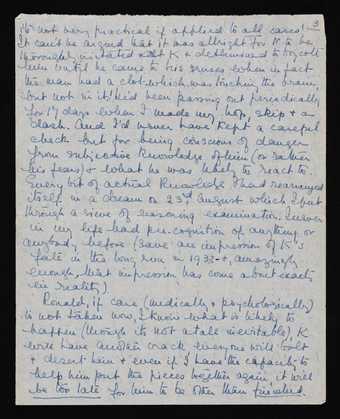 3
is not very practical if applied to all cases!
It can't be argued that it was allright for K to be
thoroughly irritated with K & determined to boycott
him until he came to his senses when in fact
the man had a clot which was touching the brain,
but not in it & he'd been passing out periodically
for 17 days when I made my hop, skip & a
dash. And I'd never have kept a careful
check but for being conscious of danger
from subjective knowledge of him (or rather
his fears) & what he was likely to react to.
Every bit of actual knowledge I had rearranged
itself in a dream on 23rd August which I put
through a sieve of reasoning examination. I never
in my life had pre-cognition of anything or
anybody before (save an impression of K's
fate in the long run in 1932-4, amazingly
enough, that impression has come about exactly
in reality)
Ronald, if care (medically & psychologically)
is not taken now, I know what is likely to
happen (though it's not at all inevitable). K
will have another crack everyone will bolt
& desert him & even if I have the capacity to
help him put the pieces together again, it will
be too late for him to be other than finished.